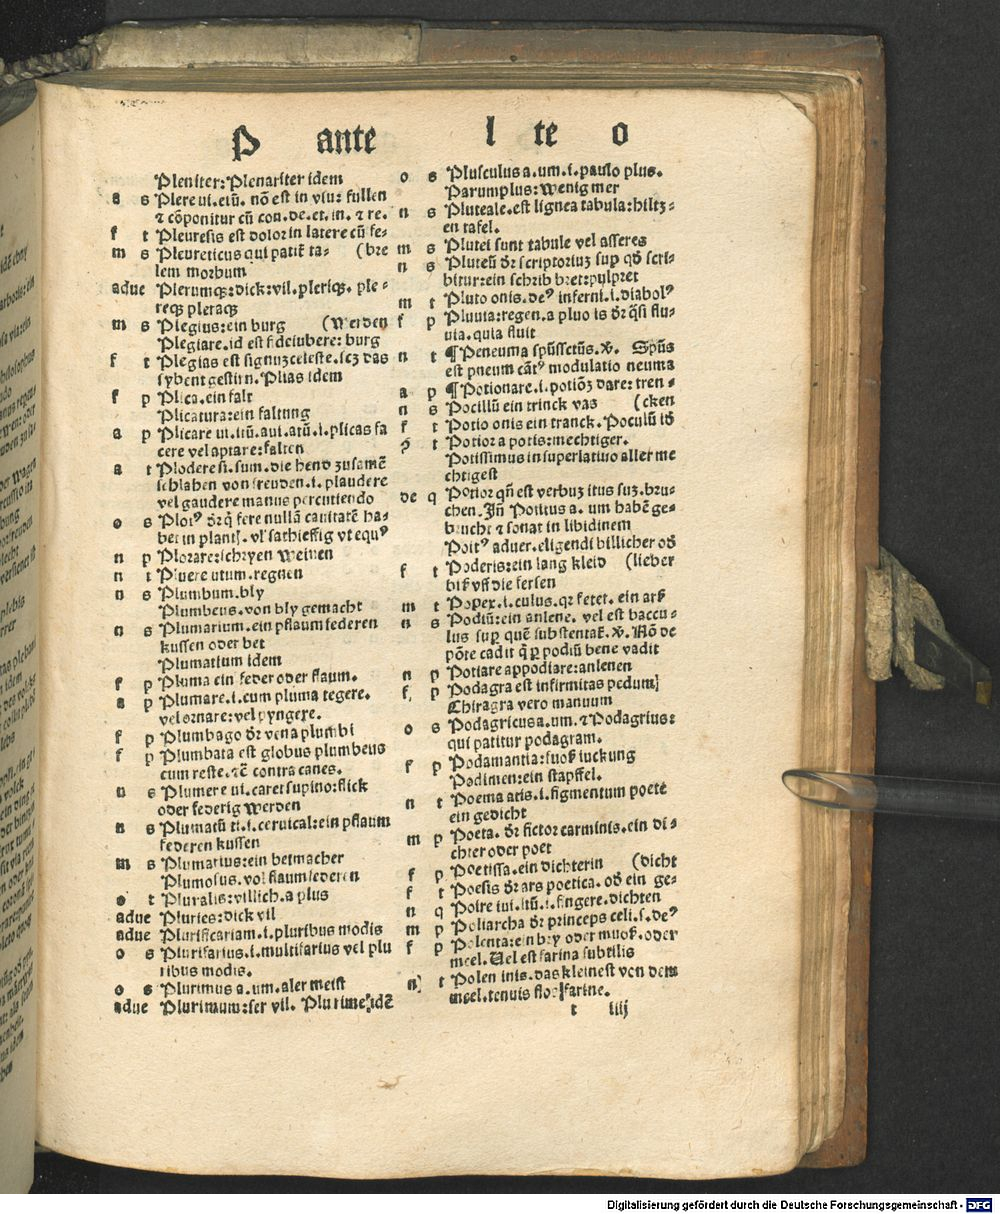 P ante l te o
Pleniter: Plenariter idem
a s Plere ui. etū. nō est in vsu: fullen
⁊ cōponitur cū con. de. et. in. ⁊ re.
f t Pleuresis est dolor in latere cū fe⸗
m s Pleureticus qui patit̄ ta⸗ (bre
lem morbum
adue Plerumqȝ: dick: vil. pleriqȝ. ple⸗
reqȝ pleraqȝ
m s Plegius: ein burg (werden
Plegiare. id est fideiubere: burg
f t Plegias est signuȝ celeste. scȝ das
sybent gestirn. Plias idem
f p Plica. ein falt
Plicatura: ein faltung
a p Plicare ui. itū. aui. atū. i. plicas fa
cere vel aptare: falten
a t Plodere si. sum. die hend zusamē
schlahen von freuden. i. plaudere
vel gaudere manus percutiendo
o s Plotꝰ dr̄ q̄ fere nullā cauitatē ha⸗
bet in plantȷ. vl̓ sathieffig vt equꝰ
n p Plorare: schryen weinen
n t Pluere utum. regnen
n s Plumbum. bly
Plumbeus. von bly gemacht
n s Plumarium. ein pflaum federen
kussen oder bet
Plumatium idem
f p Pluma ein feder oder flaum.
a p Plumare. i. cum pluma tegere.
vel ornare: vel pyngere.
f p Plumbago dr̄ vena plumbi
f p Plumbata est globus plumbeus
cum reste. ⁊c̄ contra canes.
n s Plumere ui. caret supino: flick
oder federig werden
n s Plumatū ti. i. ceruical: ein pflaum
federen kussen
m s Plumarius: ein betmacher
Plumosus. vol flaumfederen
o t Pluralis: villich. a plus
adue Pluries: dick vil
adue Plurificariam. i. pluribus modis
o s Plurifarius. i. multifarius vel plu
ribus modis.
o s Plurimus a. um. aler meist
adue Plurimum: ser vil. Plurime: idē
o s Plusculus a. um. i. paulo plus.
Parumplus: wenig mer
n s Pluteale. est lignea tabula: hiltz⸗
en tafel.
m s Plutei sunt tabule vel asseres
n s Pluteū dr̄ scriptoriuȝ sup̱ qđ scri⸗
bitur: ein schrib bret: pulpret
m t Pluto onis. deꝰ inferni. i. diabolꝰ
f p Pluuia: regen. a pluo is dr̄ q̄si flu⸗
uia. quia fluit
n t ¶ Pneuma sp̄ussctūs. v̓. Sp̄us
est pneum cātꝰ modulatio neuma
a p ¶ Potionare. i. potiōȝ dare: tren⸗
n s Pocillū ein trinck vas (cken
f t Potio onis ein tranck. Poculū iđ
t Potior a potis: mechtiger.
Potissimus in superlatiuo aller me
chtigest
de q Potior qn̄ est verbuȝ itus suȝ. bru⸗
chen. Jn̄ Potitus a. um habē ge⸗
brucht ⁊ sonat in libidinem
aduer. eligendi billicher ođ
f t Poderis: ein lang kleid (lieber
biß vff die fersen
m t Popex. i. culus. qȝ fetet. ein arß
n s Podiū: ein anlene. vel est baccu⸗
lus sup̱ quē substentat̄. v̓. Nō de
pōte cadit q̄ p̱ podiū bene vadit
n p Potiare appodiare: anlenen
f p Podagra est infirmitas pedum
Chiragra vero manuum
o s Podagricus a. um. ⁊ Podagrius:
qui patitur podagram.
f p Podamantia: fuoß iuckung
Podimen: ein stapffel.
n t Poema atis. i. figmentum poete
ein gedicht
m p Poeta. dr̄ fictor carminis. ein di⸗
chter oder poet
f p Poetissa. ein dichterin (dicht
f t Poesis dr̄ ars poetica. ođ ein ge⸗
n q Poire iui. itū. i. fingere. dichten
m p Poliarcha dr̄ princeps celi. s. deꝰ
f p Polenta: ein bry oder muoß. oder
meel. Uel est farina subtilis
n t Polen inis. das kleinest von dem
meel. tenuis flos farine.
t iiij
Digitalisierung gefördert durch die Deutsche Forschungsgemeinschaft - DFG